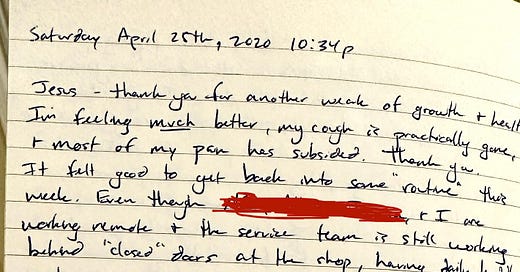 Saturday April 25th, 2020 10:34p
Jesus - thank you for another week of growth + healt
I'm feeling much better, my cough is practically gone,
+ most of my pain has subsided. Thank you.
It felt good to get back into some "routine" this
week. Even though , + I are
working remote + the service team is still working
behind "closed" doors at the shop, having daily